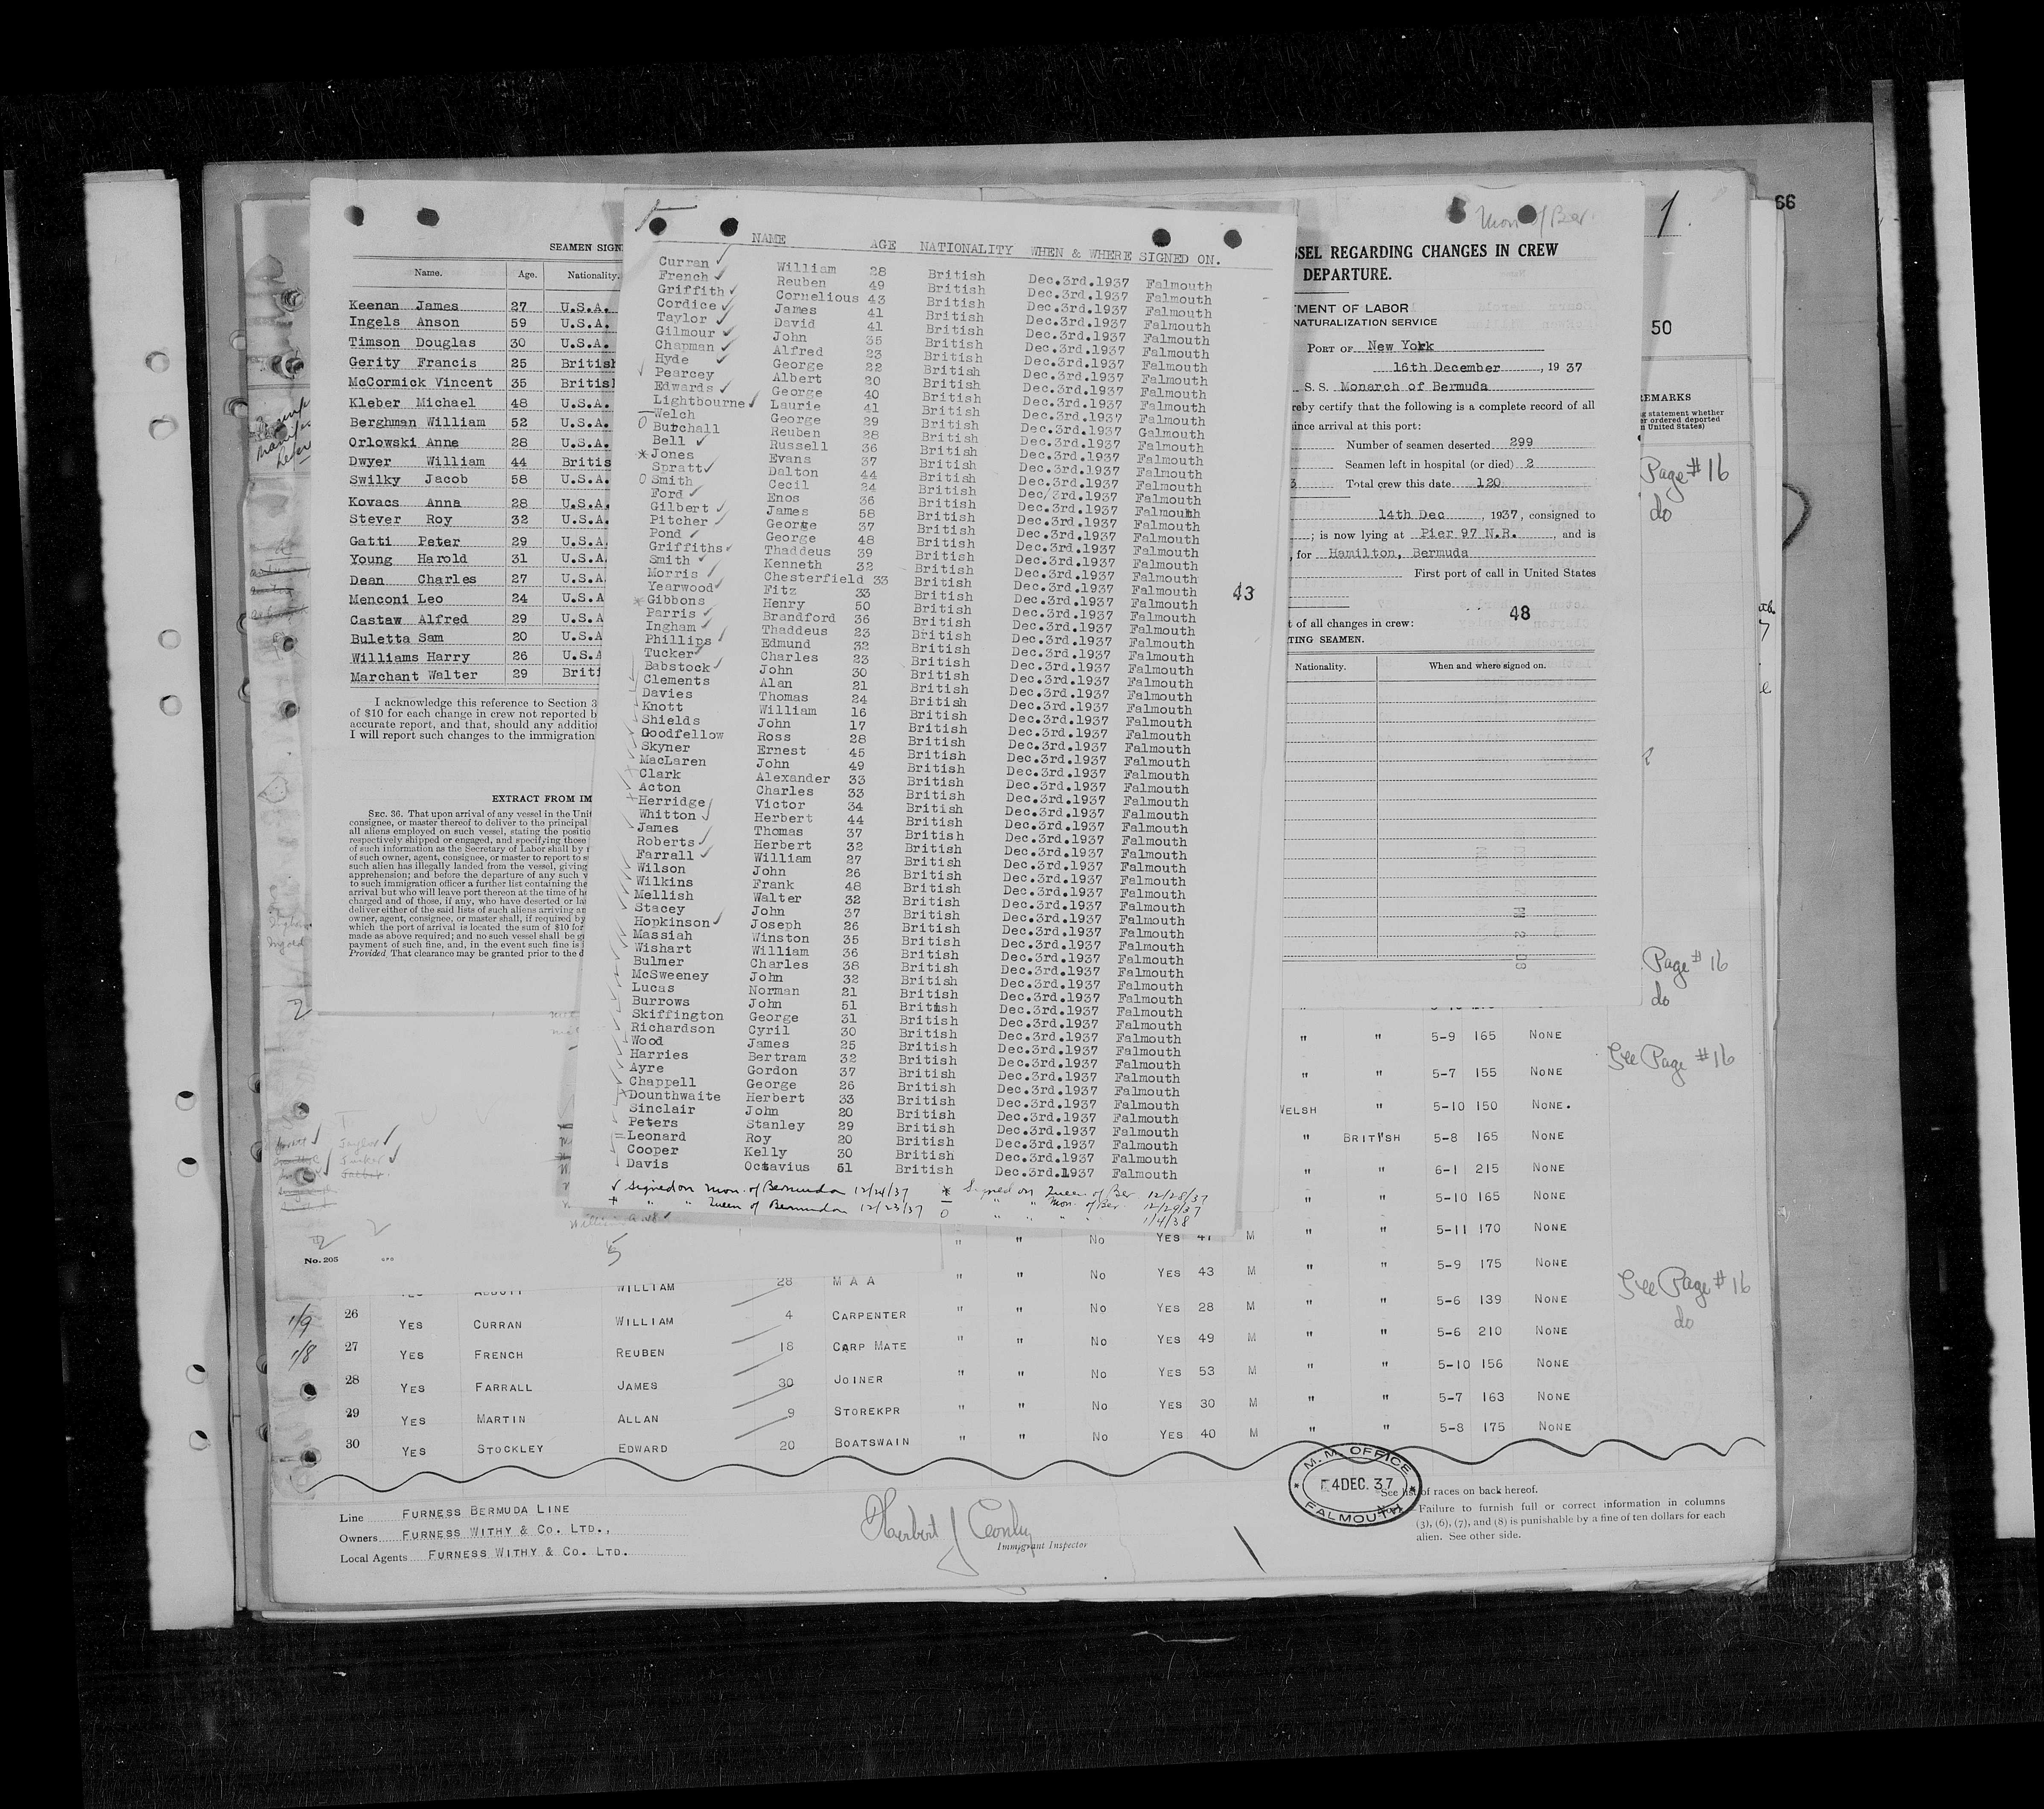 SEAMEN SIGN
Name. Age. Nationality.
Keenan James 27 U.S.A.
Ingels Anson 59 U.S.A.
Timson Douglas 30 U.S.A.
Gerity Francis 25 British
McCormick Vincent 35 British
Kleber Michael 48 U.S.A.
Berghman William 52 U.S.A.
Orlowski Anne 28 U.S.A.
Dwyer William 44 Britis
Swilky Jacob 58 U.S.A.
Kovacs Anna 28 U.S.A.
Stever Roy 32 U.S.A.
Gatti Peter 29 U.S.A
Young Harold 31 U.S.A
Dean Charles 27 U.S.A
Menconi Leo 24 U.S.A
Castaw Alfred 29 U.S.A
Buletta Sam 20 U.S.A
Williams Harry 26 U.S.A
Marchant Walter 29 Briti
I acknowledge this reference to Section 3
of $10 for each change in crew not reported b
accurate report, and that, should any additio
I will report such changes to the immigration
EXTRACT FROM IM
SEC. 36. That upon arrival of any vessel in the Unit
consignee, or master thereof to deliver to the principal
all aliens employed on such vessel, stating the positio
respectively shipped or engaged, and specifying those
of such information as the Secretary of Labor shall by r
of such owner, agent, consignee, or master to report to s
such alien has illegally landed from the vessel, giving
apprehension; and before the departure of any such v
to such immigration officer a further list containing the
arrival but who will leave port thereon at the time of h
charged and of those, if any, who have deserted or la
deliver either of the said lists of such aliens arriving an
owner, agent, consignee, or master shall, if required by
which the port of arrival is located the sum of $10 for
made as above required; and no such vessel shall be g
payment of such fine, and, in the event such fine is i
Provided, That clearance may be granted prior to the d
No. 205
NAME AGE NATIONALITY WHEN & WHERE SIGNED ON.
Curran ✓ William 28 British Dec.3rd.1937 Falmouth
French ✓ Reuben 49 British Dec.3rd.1937 Falmouth
Griffith ✓ Cornelious 43 British Dec.3rd.1937 Falmouth
Cordice ✓ James 41 British Dec.3rd.1937 Falmouth
Taylor ✓ David 41 British Dec.3rd.1937 Falmouth
Gilmour ✓ John 35 British Dec.3rd.1937 Falmouth
Chapman ✓ Alfred 23 British Dec.3rd.1937 Falmouth
Hyde ✓ George 22 British Dec.3rd.1937 Falmouth
✓ Pearcey Albert 20 British Dec.3rd.1937 Falmouth
Edwards ✓ George 40 British Dec.3rd.1937 Falmouth
Lightbourne ✓ Laurie 41 British Dec.3rd.1937 Falmouth
Welch George 29 British Dec.3rd.1937 Galmouth
O Butchall Reuben 28 British Dec.3rd.1937 Falmouth
Bell ✓ Russell 36 British Dec.3rd.1937 Falmouth
* Jones Evans 37 British Dec.3rd.1937 Falmouth
Spratt ✓ Dalton 44 British Dec.3rd.1937 Falmouth
O Smith Cecil 24 British Dec/3rd.1937 Falmouth
Ford ✓ Enos 36 British Dec.3rd.1937 Falmouhh
Gilbert ✓ James 58 British Dec.3rd.1937 Falmouth
Pitcher ✓ George 37 British Dec.3rd.1937 Falmouth
Pond ✓ George 48 British Dec.3rd.1937 Falmouth
Griffiths ✓ Thaddeus 39 British Dec.3rd.1937 Falmouth
Smith ✓ Kenneth 32 British Dec.3rd.1937 Falmouth
Morris ✓ Chesterfield 33 British Dec.3rd.1937 Falmouth
Yearwood ✓ Fitz 33 British Dec.3rd.1937 Falmouth
* Gibbons Henry 50 British Dec.3rd.1937 Falmouth
Parris ✓ Brandford 36 British Dec.3rd.1937 Falmouth
Ingham ✓ Thaddeus 23 British Dec.3rd.1937 Falmouth
Phillips ✓ Edmund 32 British Dec.3rd.1937 Falmouth
Tucker ✓ Charles 23 British Dec.3rd.1937 Falmouth
Babstock ✓ John 30 British Dec.3rd.1937 Falmouth
Clements Alan 21 British Dec.3rd.1937 Falmouth
Davies Thomas 24 British Dec.3rd.1937 Falmouth
Knott William 16 British Dec.3rd.1937 Falmouth
Shields John 17 British Dec.3rd.1937 Falmouth
Goodfellow Ross 28 British Dec.3rd.1937 Falmouth
Skyner Ernest 45 British Dec.3rd.1937 Falmouth
MacLaren John 49 British Dec.3rd.1937 Falmouth
Clark Alexander 33 British Dec.3rd.1937 Falmouth
Acton Charles 33 British Dec.3rd.1937 Falmouth
Herridge Victor 34 British Dec.3rd.1937 Falmouth
Whitton ✓ Herbert 44 British Dec.3rd.1937 Falmouth
James Thomas 37 British Dec.3rd.1937 Falmouth
Roberts ✓ Herbert 32 British Dec.3rd.1937 Falmouth
Farrall ✓ William 27 British Dec.3rd.1937 Falmouth
Wilson John 26 British Dec.3rd.1937 Falmouth
Wilkins Frank 48 British Dec.3rd.1937 Falmouth
Mellish Walter 32 British Dec.3rd.1937 Falmouth
Stacey John 37 British Dec.3rd.1937 Falmouth
Hopkinson ✓ Joseph 26 British Dec.3rd.1937 Falmouth
Massiah Winston 35 British Dec.3rd.1937 Falmouth
Wishart William 36 British Dec.3rd.1937 Falmouth
Bulmer Charles 38 British Dec.3rd.1937 Falmouth
McSweeney John 32 British Dec.3rd.1937 Falmouth
Lucas Norman 21 British Dec.3rd.1937 Falmouth
Burrows John 51 British Dec.3rd.1937 Falmouth
Skiffington George 31 British Dec.3rd.1937 Falmouth
Richardson Cyril 30 British Dec.3rd.1937 Falmouth
Wood James 25 British Dec.3rd.1937 Falmouth
Harries Bertram 32 British Dec.3rd.1937 Falmouth
Ayre Gordon 37 British Dec.3rd.1937 Falmouth
Chappell George 26 British Dec.3rd.1937 Falmouth
Dounthwaite Herbert 33 British Dec.3rd.1937 Falmouth
Sinclair John 20 British Dec.3rd.1937 Falmouth
Peters Stanley 29 British Dec.3rd.1937 Falmouth
Leonard Roy 20 British Dec.3rd.1937 Falmouth
Cooper Kelly 30 British Dec.3rd.1937 Falmouth
Davis Octavius 51 British Dec.3rd.1937 Falmouth
43
✓ Signed on Mon. of Bermuda 12/24/37
+ " " Queen of Bermuda 12/23/37
* Signed on Queen of Ber 12/28/37
— " Mon. of Ber. 12/29/37
O " " " " 1/4/38
5
Mon of Ber.
1
66
SSEL REGARDING CHANGES IN CREW
DEPARTURE.
TMENT OF LABOR
NATURALIZATION SERVICE
PORT OF New York
16th December, 1937
S. S. Monarch of Bermuda
reby certify that the following is a complete record of all
since arrival at this port:
Number of seamen deserted 299
Seamen left in hospital (or died) 2
Total crew this date 120
14th Dec, 1937, consigned to
; is now lying at Pier 97 N.R., and is
, for Hamilton, Bermuda
First port of call in United States
48
t of all changes in crew:
TING SEAMEN.
Nationality. When and where signed on.
50
REMARKS
g statement whether
er ordered deported
n United States)
Page #16
do
Page #16
do
" " 5-9 165 NONE
See Page #16
" " 5-7 155 NONE
WELSH " 5-10 150 NONE.
" BRITISH 5-8 165 NONE
" " 6-1 215 NONE
" " 5-10 165 NONE
" " 5-11 170 NONE
" " No YES 41 M " " 5-9 175 NONE
WILLIAM 28 M A A " " No YES 43 M " " 5-6 139 NONE
See Page #16
do
1/9 26 YES CURRAN WILLIAM 4 CARPENTER " " No YES 28 M " " 5-6 210 NONE
1/8 27 YES FRENCH REUBEN 18 CARP MATE " " No YES 49 M " " 5-10 156 NONE
28 YES FARRALL JAMES 30 JOINER " " No YES 53 M " " 5-7 163 NONE
29 YES MARTIN ALLAN 9 STOREKPR " " No YES 30 M " " 5-8 175 NONE
30 YES STOCKLEY EDWARD 20 BOATSWAIN " " No YES 40 M
Line FURNESS BERMUDA LINE
Owners FURNESS WITHY & CO. LTD.,
Local Agents FURNESS WITHY & CO. LTD.
Immigrant Inspector
M.M. OFFICE
4 DEC. 37
FALMOUTH
See list of races on back hereof.
Failure to furnish full or correct information in columns
(3), (6), (7), and (8) is punishable by a fine of ten dollars for each
alien. See other side.